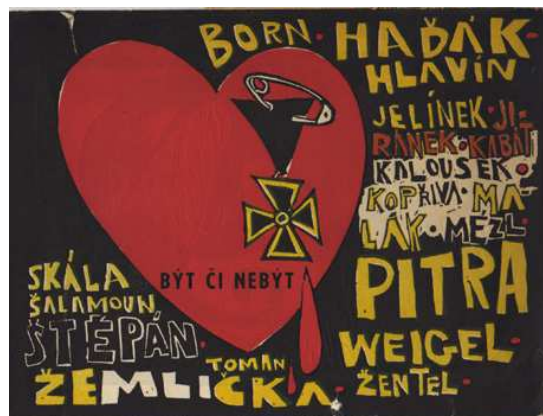 BORN · HAĎÁK ·
HLAVÍN
JELÍNEK · JI-
RÁNEK · KABÁT
KALOUSEK ·
KOPŘIVA · MA-
LÁK · MEZL ·
PITRA
WEIGEL ·
ŽENTEL ·
BÝT ČI NEBÝT
SKÁLA
ŠALAMOUN
ŠTĚPÁN ·
TOMAN
ŽEMLIČKA ·